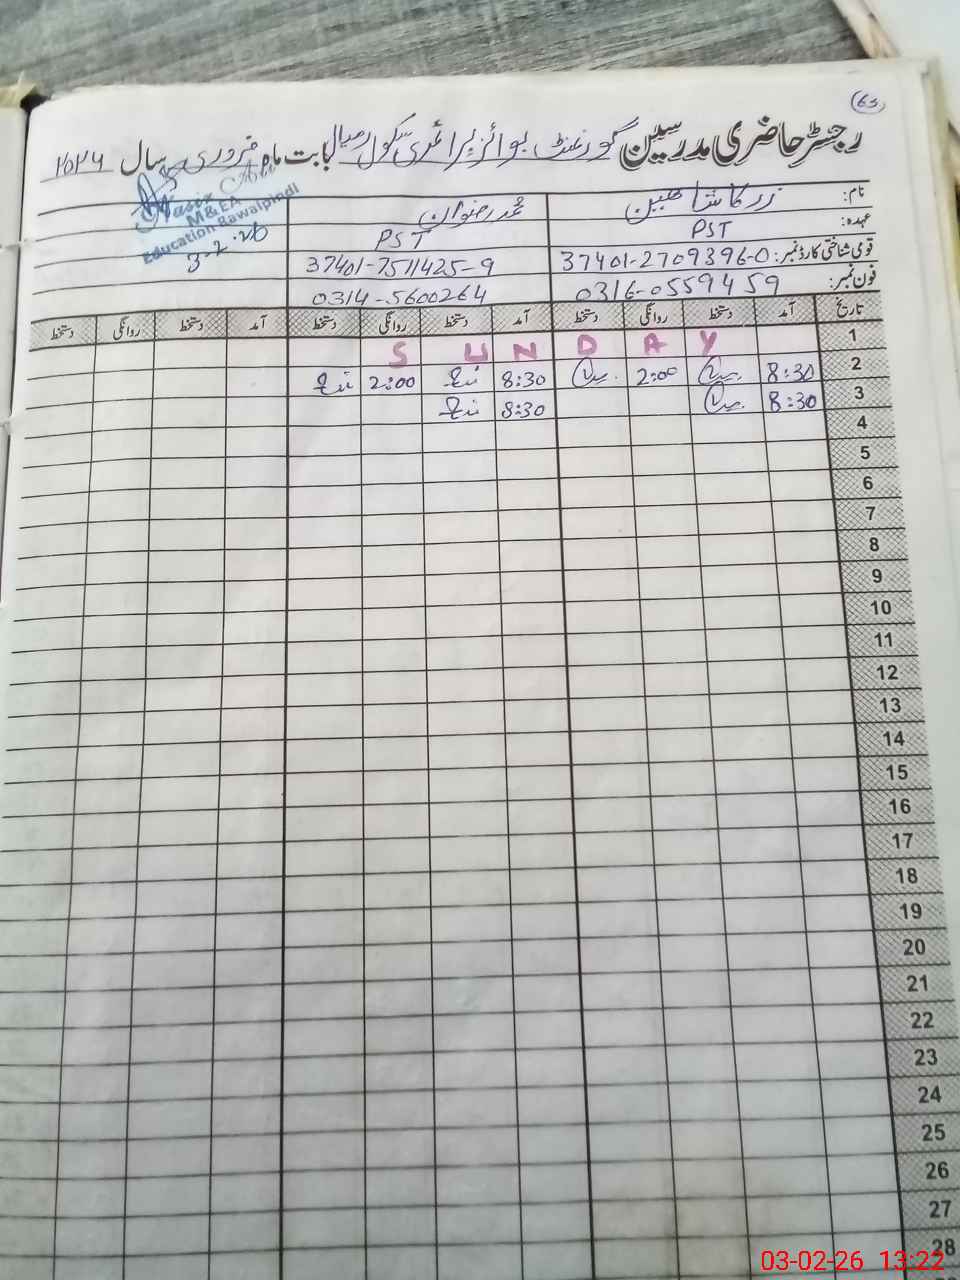 63
رجسٹر حاضری مدرسین گورنمنٹ بوائز پرائمری سکول رمیال بابت ماہ فروری سال ۲۰۲۶
Nasir Ali
M&EA
Education Rawalpindi
3-2-26
نام: محمد رضوان
عہدہ: PST PST
قومی شناختی کارڈ نمبر: 37401-2709396-0 37401-7511425-9
فون نمبر: 0316-0559459 0314-5600264
تاریخ آمد دستخط روانگی دستخط آمد دستخط روانگی دستخط آمد دستخط روانگی دستخط
1 S U N D A Y
2 8:30 2:00 8:30 2:00
3 8:30 8:30
4
5
6
7
8
9
10
11
12
13
14
15
16
17
18
19
20
21
22
23
24
25
26
27
28
03-02-26 13:22